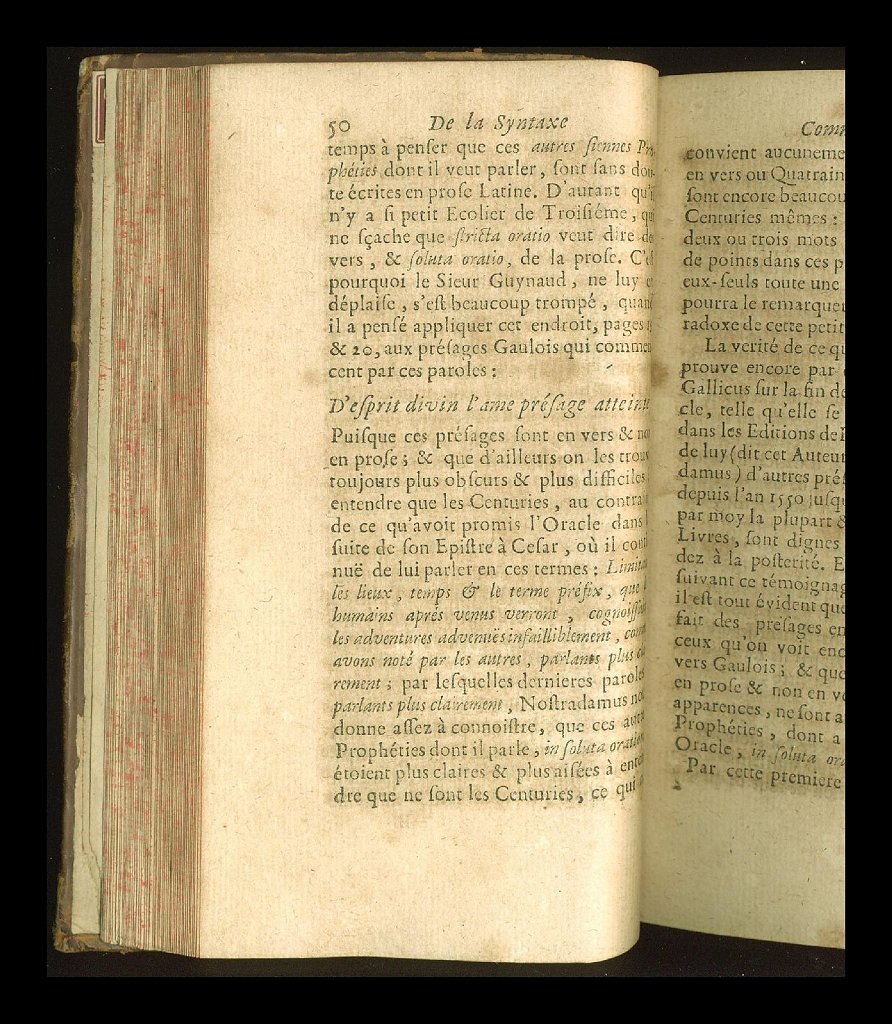 50 De la Syntaxe
temps à penſer que ces autres ſiennes Pro-
phéties dont il veut parler, ſont ſans dou-
te écrites en proſe Latine. D'autant qu'il
n'y a ſi petit Ecolier de Troiſiéme, qui
ne ſçache que ſtricta oratio veut dire des
vers, & ſoluta oratio, de la proſe. C'eſt
pourquoi le Sieur Guynaud, ne luy en
déplaiſe, s'eſt beaucoup trompé, quand
il a penſé appliquer cet endroit, pages
& 20, aux préſages Gaulois qui commen-
cent par ces paroles:
D'eſprit divin l'ame préſage atteinte
Puiſque ces préſages ſont en vers & non
en proſe; & que d'ailleurs on les trouve
toujours plus obſcurs & plus difficiles
entendre que les Centuries, au contraire
de ce qu'avoit promis l'Oracle dans
ſuite de ſon Epiſtre à Ceſar, où il conti-
nuë de lui parler en ces termes: Limitant
les lieux, temps & le terme préfix, que
humains aprés venus verront, cognoiſſant
les adventures advenuës infailliblement,
avons noté par les autres, parlants plus clai-
rement; par leſquelles dernieres paroles
parlants plus clairement, Noſtradamus
donne aſſez à connoiſtre, que ces autres
Prophéties dont il parle, in ſoluta oratione
étoient plus claires & plus aiſées à enten-
dre que ne ſont les Centuries, ce qui
convient aucuneme
en vers ou Quatrain
ſont encore beaucou
Centuries mêmes:
deux ou trois mots
de points dans ces p
eux-ſeuls toute une
pourra le remarquer
radoxe de cette petit
La verité de ce qu
prouve encore par
Gallicus ſur la fin de
cle, telle qu'elle ſe
dans les Editions de
de luy (dit cet Auteur
damus) d'autres pré
depuis l'an 1550 juſqu
par moy la plupart
Livres, ſont dignes
dez à la poſterité. E
ſuivant ce témoignag
il eſt tout évident que
fait des preſages en
ceux qu'on voit enc
vers Gaulois; & que
en proſe & non en ve
apparences, ne ſont a
Prophéties, dont a
Oracle, in ſoluta ora
Par cette premiere